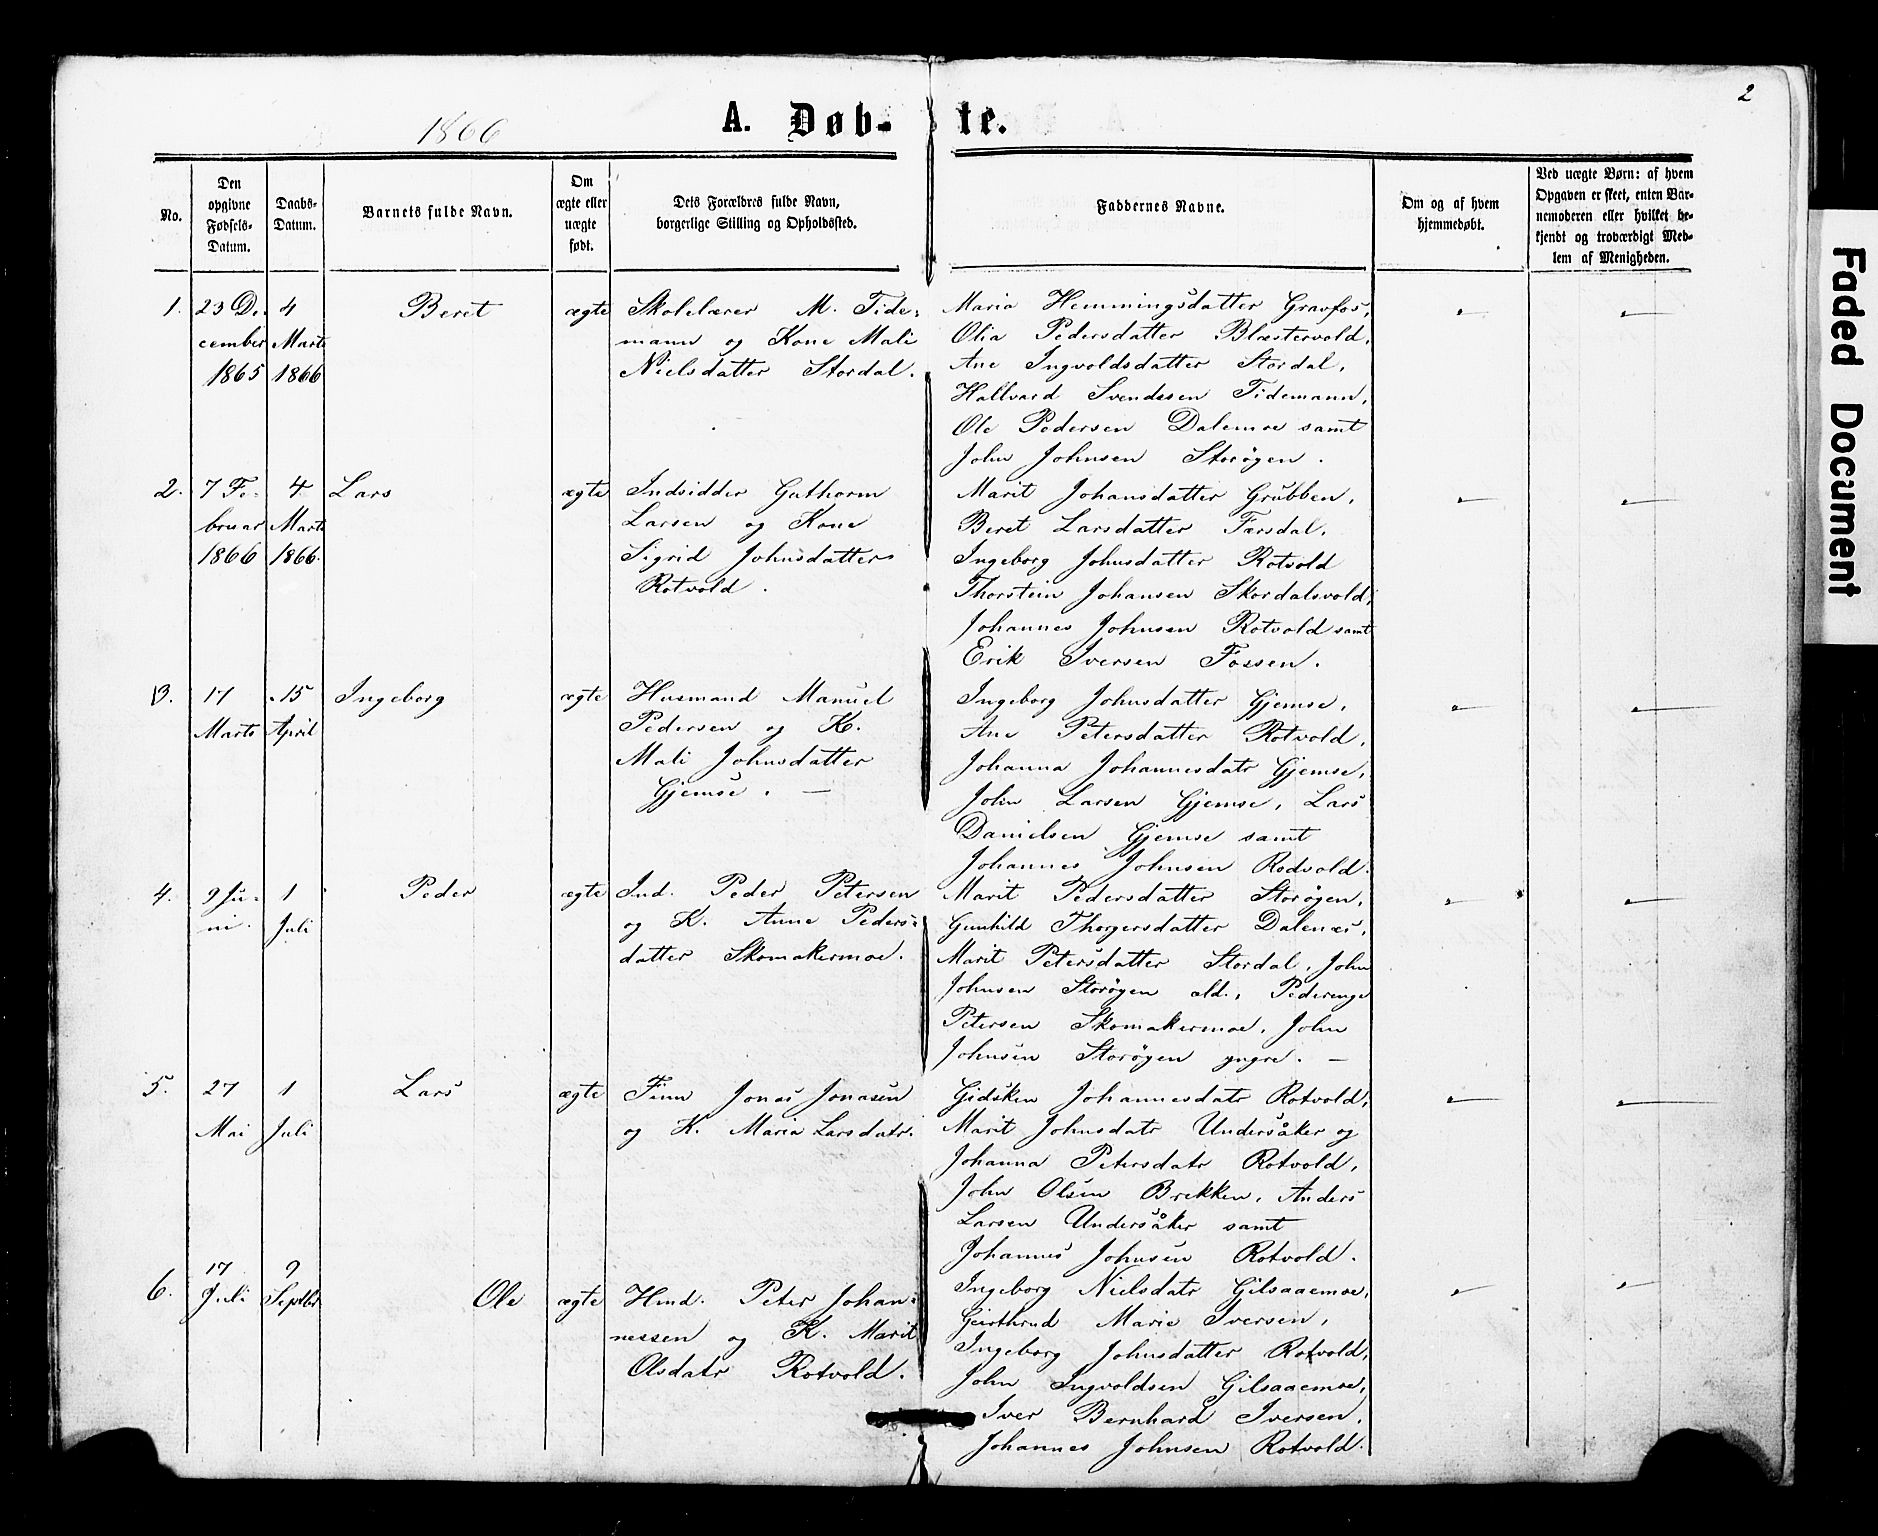 2
1866
A. Døb-te.
No.
Den
opgivne
Fødsels-
Datum.
Daabs-
Datum.
Barnets fulde Navn.
Om
ægte eller
uægte
født.
Dets Forældres fulde Navn,
borgerlige Stilling og Opholdssted.
Faddernes Navne.
Om og af hvem
hjemmedøbt.
Ved uægte Børn: af hvem
Opgaven er skeet, enten Bar-
nemoderen eller hvilket be-
kjendt og troværdigt Med-
lem af Menigheden.
1.
23 De-
cember
1865
4
Marts
1866
Beret
ægte
Skolelærer M. Tide-
mann og Kone Mali
Nielsdatter Stordal.
Maria Hemmingsdatter Gravfos,
Olia Pedersdatter Blæstervold,
Ane Ingvoldsdatter Stordal,
Hallvard Svendsen Tidemann,
Ole Pedersen Dalemoe samt
John Johnsen Storøgen.
2.
7 Fe-
bruar
1866
4
Marts
1866.
Lars
ægte
Indsidder Guthorm
Larsen og Kone
Sigrid Johnsdatter
Rotvold.
Marit Johansdatter Grubben,
Beret Larsdatter Færsdal,
Ingeborg Johnsdatter Rotvold
Thorstein Johansen Skordalsvold,
Johannes Johnsen Rotvold samt
Erik Iversen Fossen.
3.
17
Marts
15
April
Ingeborg
ægte
Husmand Manuel
Pedersen og K.
Mali Johnsdatter
Gjemse. —
Ingeborg Johnsdatter Gjemse,
Ane Petersdatter Rotvold,
Johanna Johannesdatr Gjemse,
John Larsen Gjemse, Lars
Danielsen Gjemse samt
Johannes Johnsen Rodvold.
4.
9 Ju-
ni.
1
Juli
Peder
ægte
Ind. Peder Petersen
og K. Anne Peders-
datter Skomakermoe.
Marit Pedersdatter Storøgen,
Gunhild Thorgersdatter Dalenæs,
Marit Petersdatter Stordal, John
Johnsen Storøgen æld., Pederenge
Petersen Skomakermoe, John
Johnsen Storøgen yngre. —
5.
27
Mai
1
Juli
Lars
ægte
Finn Jonas Jonasen
og K. Maria Larsdatr.
Gidsken Johannesdatr Rotvold,
Marit Johnsdatr Undersåker og
Johanna Petersdatr Rotvold,
John Olsen Brekken, Anders
Larsen Undersåker samt
Johannes Johnsen Rotvold.
6.
17
Juli
9
Septbr
Ole
ægte
Hmd. Peter Johan-
nessen og K. Marit
Olsdatr Rotvold.
Ingeborg Nielsdatr Gilsaaemoe,
Geirthrud Marie Iversen,
Ingeborg Johnsdatter Rotvold,
John Ingvoldsen Gilsaaemoe,
Iver Bernhard Iversen,
Johannes Johnsen Rotvold.
Faded Document